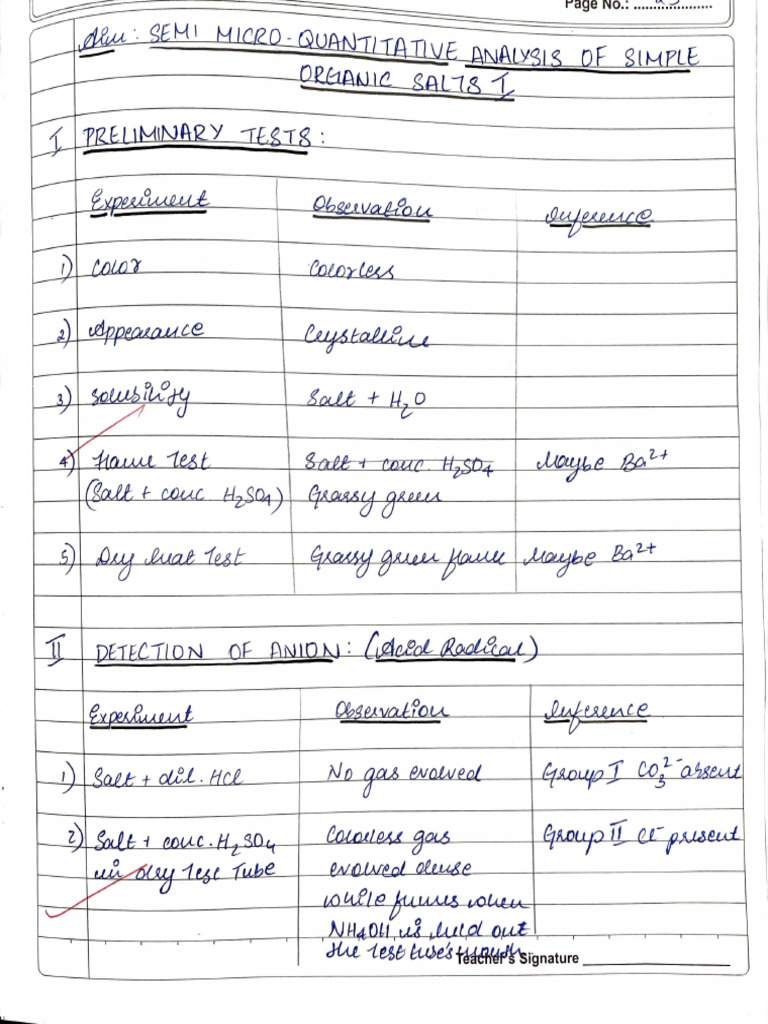 Page No.: ....................
Aim: SEMI MICRO-QUANTITATIVE ANALYSIS OF SIMPLE
ORGANIC SALTS I
I PRELIMINARY TESTS:
Experiment Observation Inference
1) Color Colorless
2) Appearance Crystalline
3) Solubility Salt + H2O
4) Flame Test Salt + conc. H2SO4 Maybe Ba2+
(Salt + conc. H2SO4) Grassy green
5) Dry heat Test Grassy green flame Maybe Ba2+
II DETECTION OF ANION: (Acid Radical)
Experiment Observation Inference
1) Salt + dil. HCl No gas evolved Group I CO3 2- absent
2) Salt + conc. H2SO4 Colorless gas Group II Cl- present
in dry Test Tube evolved dense
white fumes when
NH4OH is held out
the test tube's mouth
Teacher's Signature